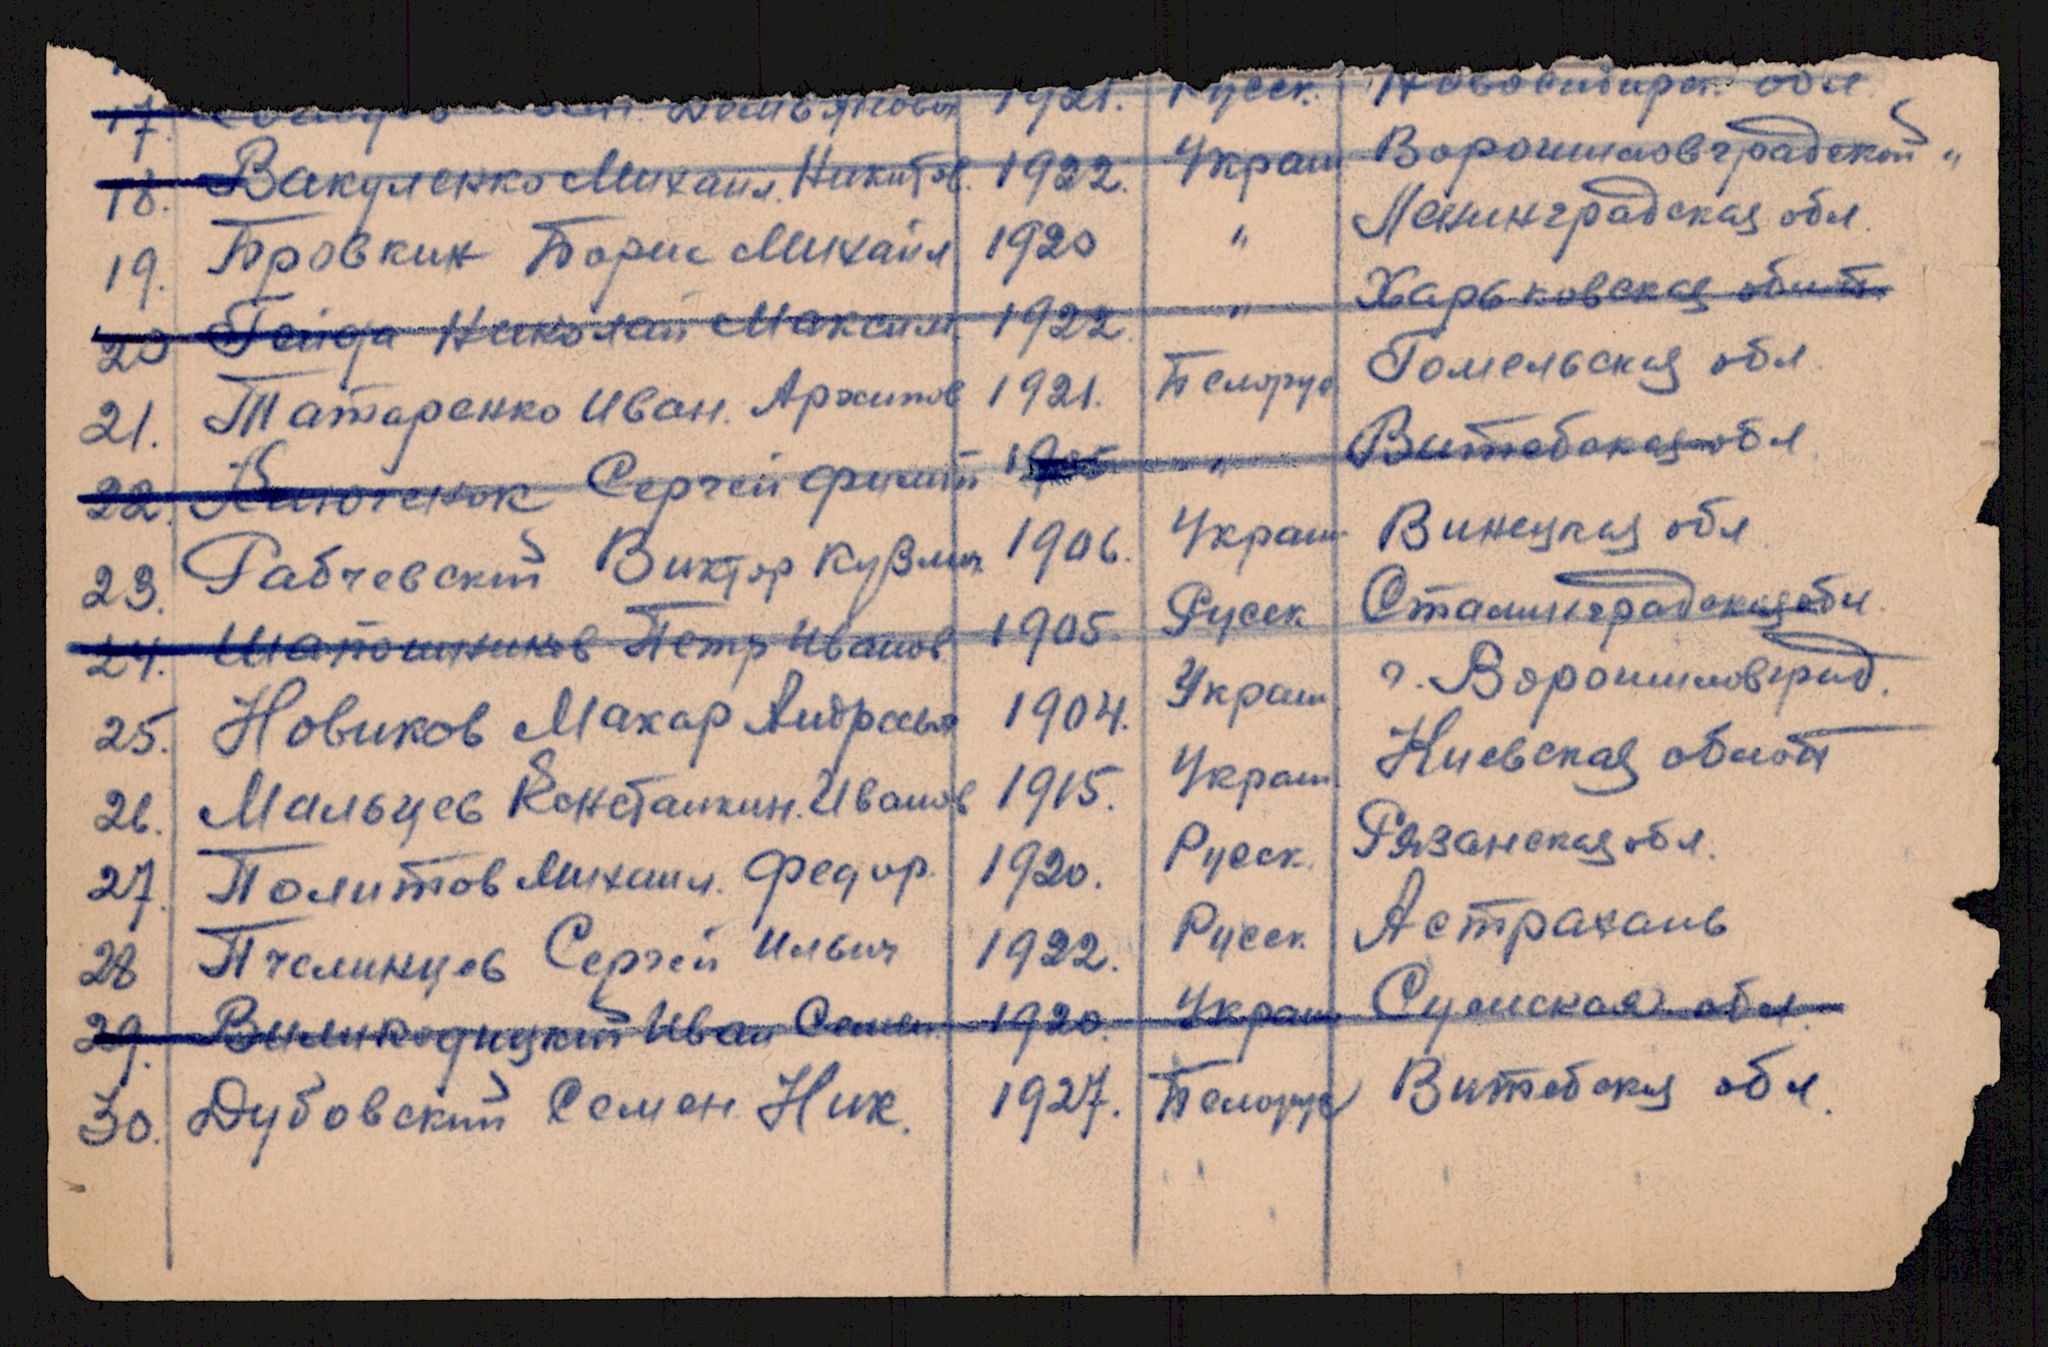 17. Демьянов 1921. Русск. Новосибирск. обл.
18. Вакуленко Михаил. Никитов. 1922. Украин Ворошиловградской "
19. Бровкин Борис Михайл 1920 " Ленинградская обл.
20 Гайда Николай Максим. 1922. " Харьковская област
21. Татаренко Иван. Архипов 1921. Белорус Гомельская обл.
22. Сергей Филип " Витебская обл.
23. Рабчевский Виктор Кузмич 1906. Украин Винецкая обл.
24. Шапошников Петр Иванов. 1905. Русск Сталинградская обл.
25. Новиков Макар Андреев 1904. Украин г. Ворошиловград.
26. Мальцев Констанкин. Иванов 1915. Украин. Киевская област
27. Политов Михаил. Федор. 1920. Русск. Рязанская обл.
28 Пчелинцев Сергей Ильич 1922. Русск. Астрахань
29. Иван Семен. 1920. Украин Сумская обл.
30. Дубовский Семен Ник. 1927. Белорус Витебская обл.